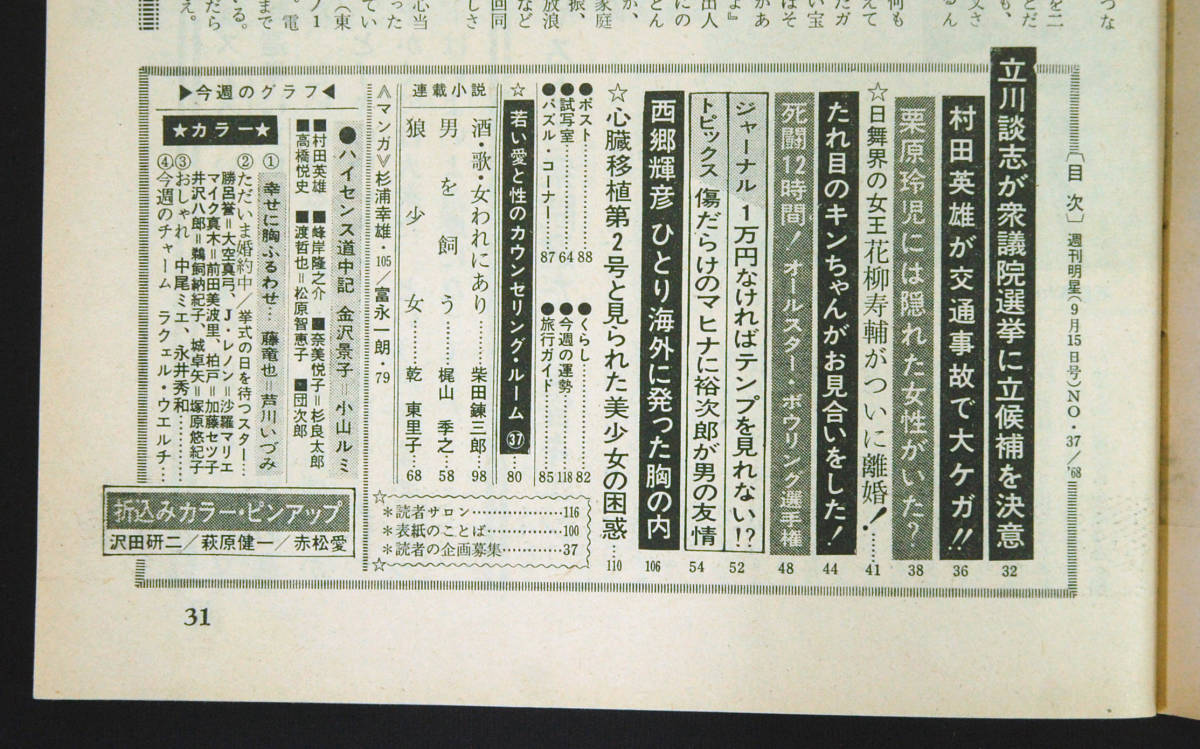 〔目次〕週刊明星(9月15日号)NO・37/'68
立川談志が衆議院選挙に立候補を決意 32
村田英雄が交通事故で大ケガ!! 36
栗原玲児には隠れた女性がいた? 38
☆日舞界の女王花柳寿輔がついに離婚!…… 41
たれ目のキンちゃんがお見合いをした! 44
死闘12時間! オールスター・ボウリング選手権 48
ジャーナル 1万円なければテンプを見れない!? 52
トピックス 傷だらけのマヒナに裕次郎が男の友情 54
西郷輝彦 ひとり海外に発った胸の内 106
☆心臓移植第2号と見られた美少女の困惑… 110
●ポスト………88
●試写室………64
●パズル・コーナー……87
●くらし………82
●今週の運勢…118
●旅行ガイド……85
☆若い愛と性のカウンセリング・ルーム㊲…80
連載小説
酒・歌・女われにあり……柴田錬三郎…98
男を飼う……梶山季之…58
狼少女……乾東里子…68
《マンガ》杉浦幸雄・105/富永一朗・79
☆
*読者サロン………116
*表紙のことば………100
*読者の企画募集………37
☆
▶今週のグラフ◀
●ハイセンス道中記 金沢景子=小山ルミ
■村田英雄 ■峰岸隆之介 ■奈美悦子=杉良太郎
■高橋悦史 ■渡哲也=松原智恵子 ■団次郎
★カラー★
①幸せに胸ふるわせ… 藤竜也=芦川いづみ
②ただいま婚約中/挙式の日を待つスター…
勝呂誉=大空真弓、J・レノン=沙羅マリエ
マイク真木=前田美波里、柏戸=加藤セツ子
井沢八郎=鵜飼納紀子、城卓矢=塚原悠紀子
③おしゃれ 中尾ミエ、永井秀和………
④今週のチャーム ラクェル・ウエルチ…
折込みカラー・ピンアップ
沢田研二/萩原健一/赤松愛
31